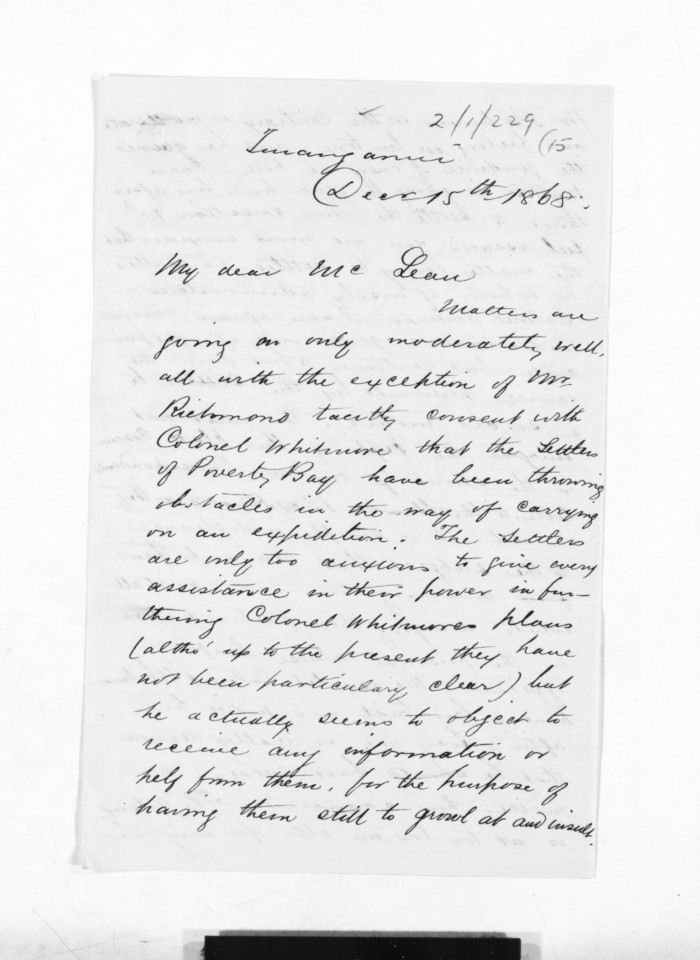 2/1/229
(15
Turanganui
Decr 15th 1868.
My dear Mc Lean
Matters are
going on only moderately well,
all with the exception of Mr.
Richmond tacitly consent with
Colonel Whitmore that the Settlers
of Poverty Bay have been throwing
obstacles in the way of carrying
on an expidition. The Settlers
are only too anxious to give every
assistance in their power in fur-
thering Colonel Whitmores plans
(altho' up to the present they have
not been particulary clear) but
he actually seems to object to
receive any information or
help from them, for the purpose of
having them still to growl at and insult.